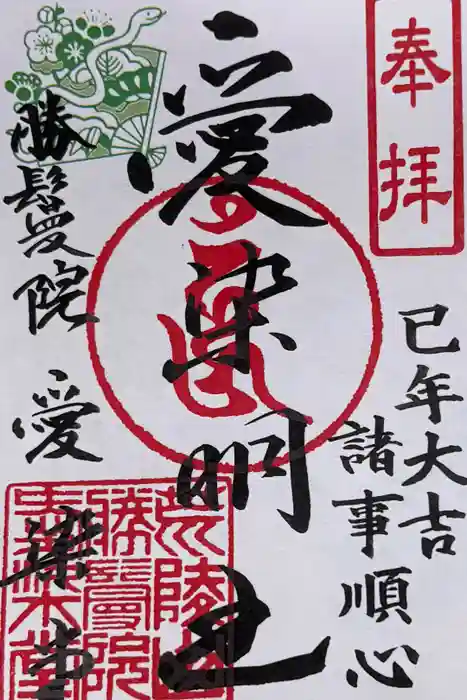 奉拝
巳年大吉
諸事順心
愛染明王
勝鬘院 愛染堂
荒陵山
勝鬘院
愛染堂